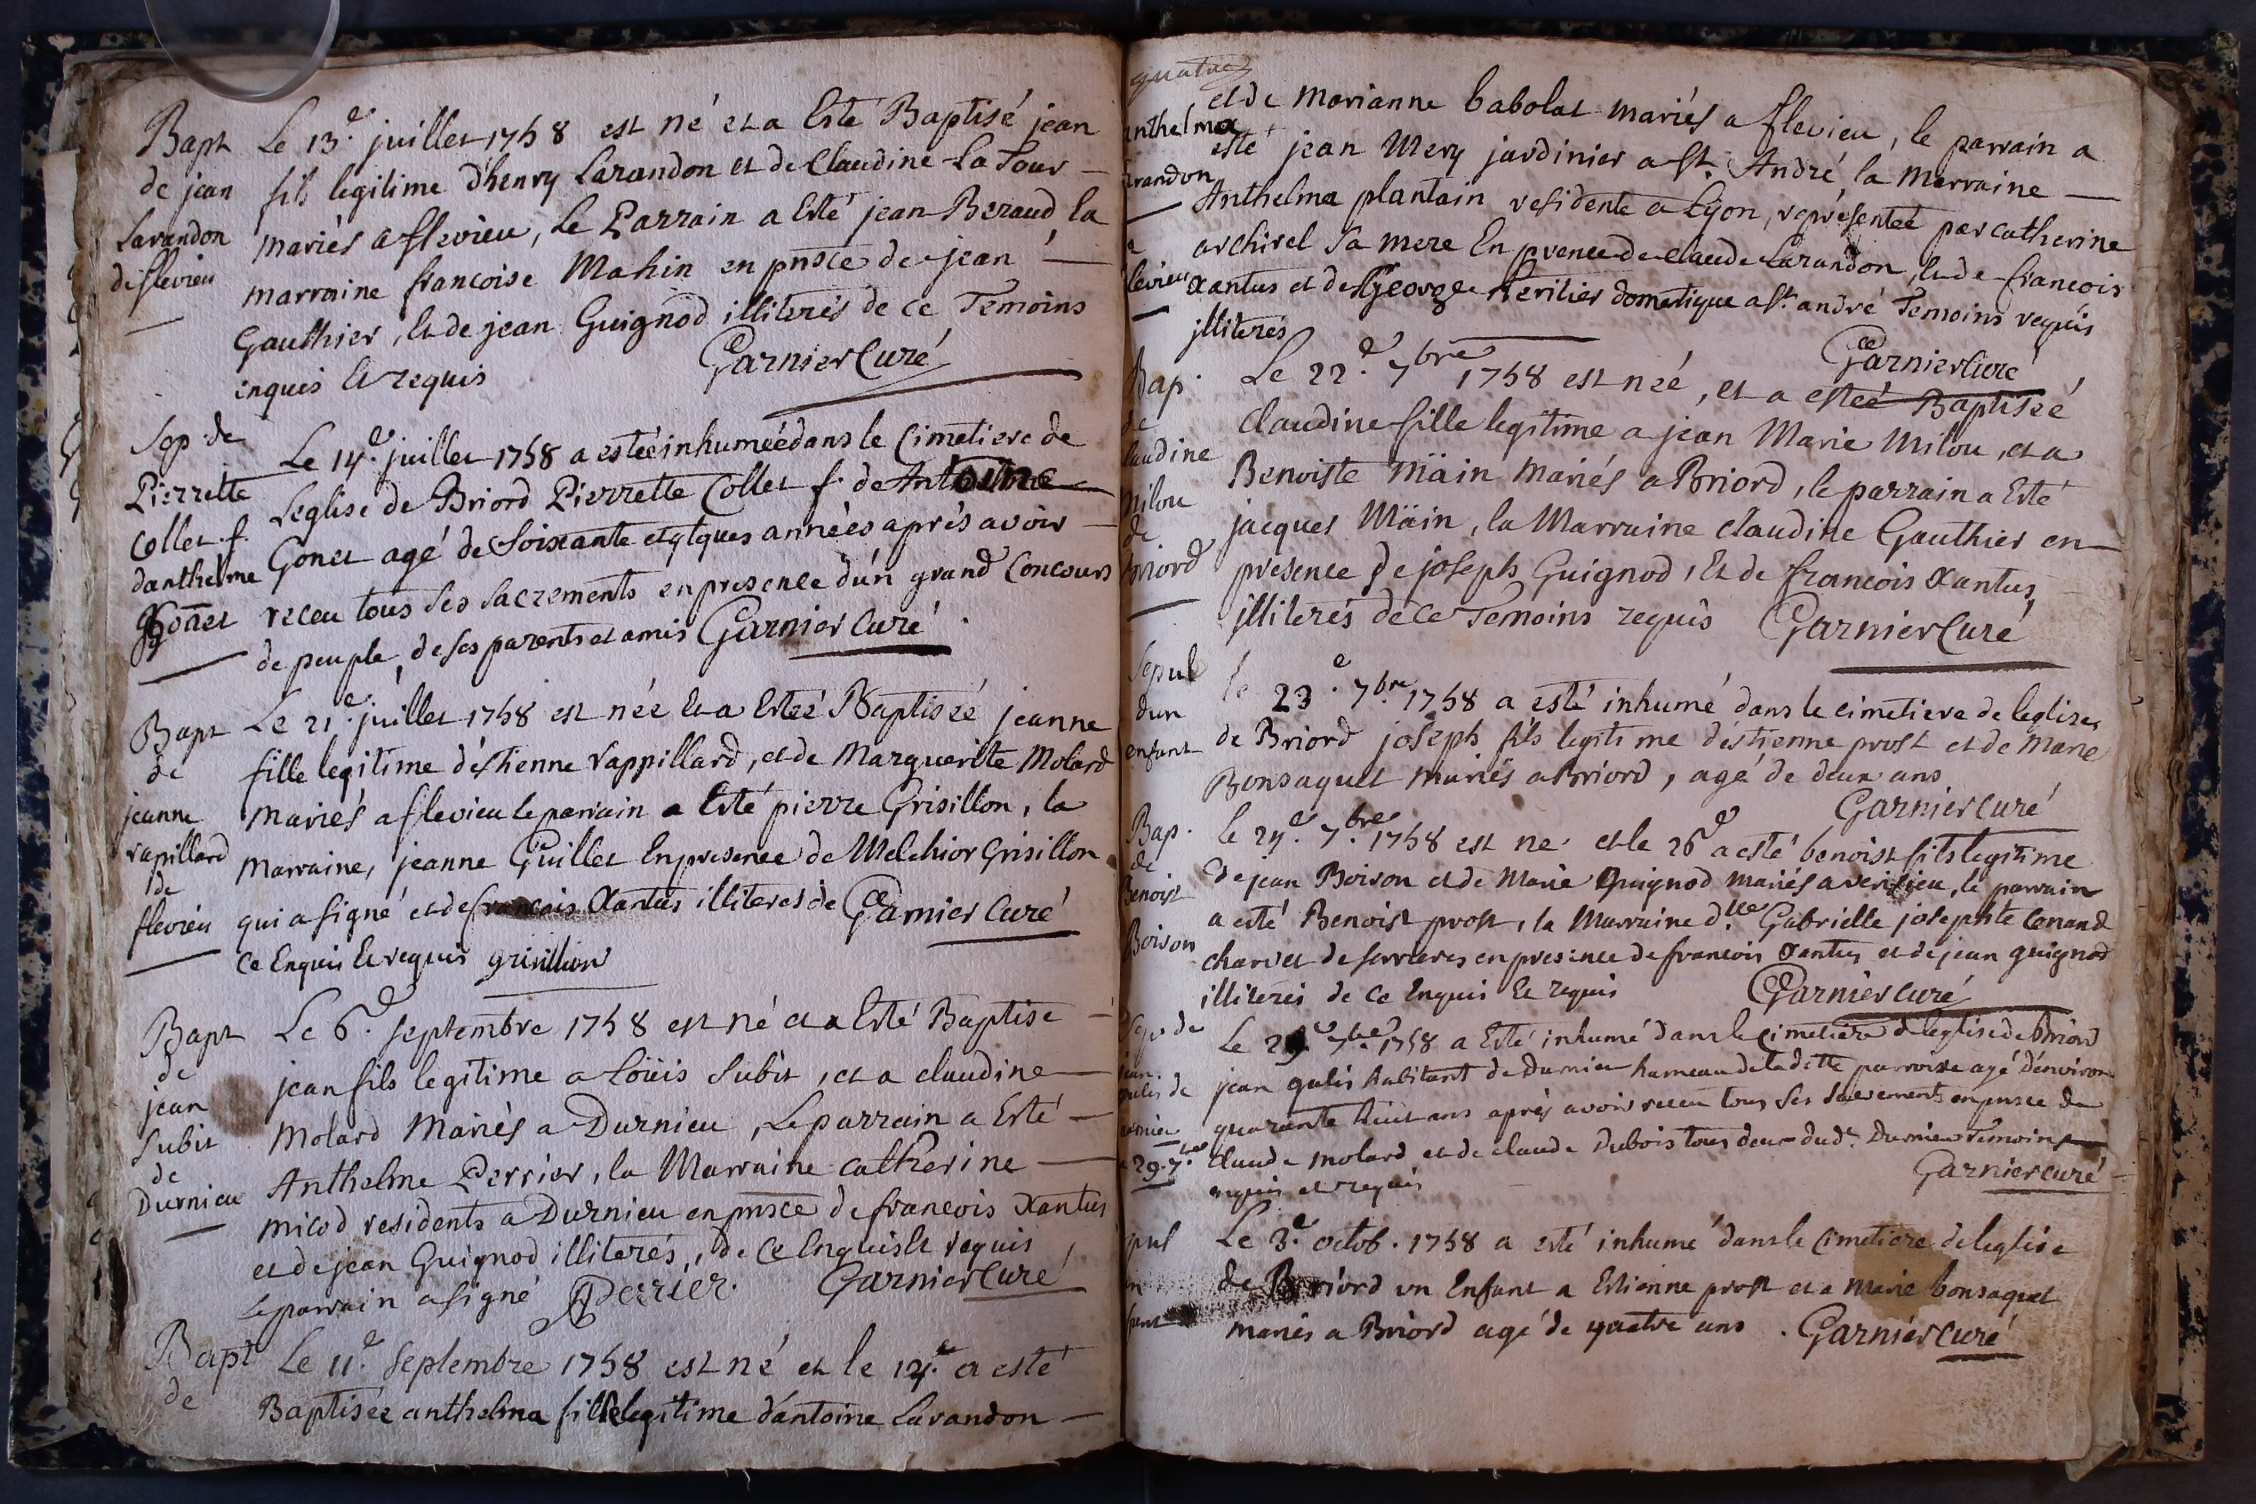 Bapt
de jean
Larandon
de flevieu
Le 13.e juillet 1758 est né et a Esté Baptisé jean
fils legitime d'henry Larandon et de Claudine La Tour
mariés a flevieu, Le Parrain a Esté jean Beraud, la
marraine francoise Mahin en pnsce de jean
Gauthier, Et de jean Guignod illiterés de ce Temoins
enquis Et requis Garnier Curé
Sep. de
Pierrette
Collet f.
danthelme
Gonet
Le 14.e juillet 1758 a estée inhumeé dans le Cimetiere de
Leglise de Briord Pierrette Collet f. de Antoine
Gonet agé de Soixante et qlques années aprés avoir
receu tous ses sacrements en presence d'un grand Concours
de peuple, de ses parents et amis Garnier Curé
Bapt
de
jeanne
rapillard
de
flevieu
Le 21.e juillet 1758 est née Et a Esteé Baptiseé jeanne
fille legitime d'éstienne rappillard, et de Marguerite Molard
mariés a flevieu le parrain a Esté pierre Grisillon, la
marraine, jeanne Guillet En presence de Melchior Grisillon
qui a signé et de francois Xantus illiteres de Garnier Curé
Ce Enquis Et requis grisillion
Bapt
de
jean
Subit
de
Durnieu
Le 6.e septembre 1758 est né et a Esté Baptisé
jean fils legitime a Loüis Subit, et a claudine
Molard Mariés a Durnieu, Le parrain a Esté
Anthelme Perrier, la Marraine catherine
micod residents a Durnieu en pnsce de francois Xantus
et de jean Guignod illiterés, de Ce Enquis Et requis
Le parrain a signé Perrier. Garnier Curé
Bapt
de
Le 11.e Septembre 1758 est né et le 14.e a esté
Baptisée anthelma fille legitime d'antoine Larandon
quatre
anthelma
Larandon
a
flevieu
et de marianne babolat mariés a flevieu, le parrain a
esté jean Mery jardinier a St. André, la marraine
Anthelma plantain residente a Lyon, représentée par catherine
archirel sa mere En prence de claude Larandon, Et de francois
Xantus et de George heritier domestique a St. andré Temoins requis
illiterés Garnier Curé
Bap.
de
Claudine
Milou
de
Briord
Le 22.e 7bre 1758 est neé, et a esteé Baptiseé
Claudine fille legitime a jean Marie Milou, et a
Benoiste Mäin mariés a Briord, le parrain a Esté
jacques Mäin, la Marraine claudine Gauthier en
presence de joseph Guignod, Et de francois Xantus,
illiterés de ce Temoins requis Garnier Curé
Sepul
dun
enfant
le 23.e 7bre 1758 a esté inhumé dans le cimetiere de leglise
de Briord joseph fils legitime d'éstienne prost et de Marie
Bonsaquet mariés a Briord, agé de deux ans
Garnier Curé
Bap.
de
Benoist
Boison
le 24.e 7bre 1758 est ne et le 26.e a esté benoist fils legitime
de jean Boison et de Marie Guignod mariés a verisieu, le parrain
a esté Benoist prost, la Marraine d.lle Gabrielle josephte Conand
charvet de serrieres en presence de francois Xantus et de jean guignod
illiterés de Ce Enquis Et requis Garnier Curé
Sep. de
jean
gulis de
Durnieu
29. 7bre
Le 29.e 7bre 1758 a Esté inhumé dans le Cimetiere de leglise de Briord
jean gulis habitant de Durnieu hameau de ladette parroisse agé d'environ
quarante huit ans aprés avoir receu tous Ses Sacrements en pnsce de
claude molard et de claude Dubois tous deux dud.t Durnieu Temoins
enquis et requis Garnier Curé
Sepul
un
enfant
Le 3.e octob. 1758 a esté inhumé dans le Cimetiere de leglise
de Briord un Enfant a Estienne prost et a Marie bonsaquet
mariés a Briord agé de quatre ans. Garnier Curé